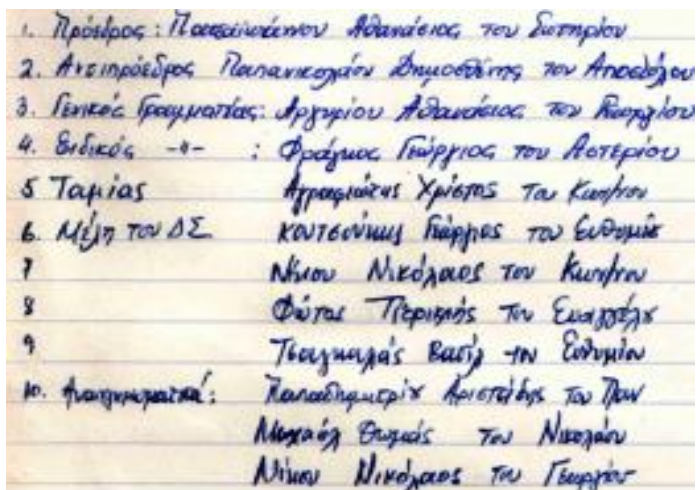 1. Πρόεδρος: Παπαϊωάννου Αθανάσιος του Σωτηρίου
2. Αντιπρόεδρος Παπανικολάου Δημοσθένης του Αποστόλου
3. Γενικός Γραμματέας: Αργυρίου Αθανάσιος του Γεωργίου
4. Ειδικός -"- : Φράγκος Γεώργιος του Αστερίου
5 Ταμίας Αγραφιώτης Χρίστος του Κων/νου
6. Μέλη του ΔΣ Κουτσούκης Γιώργος του Ευθυμίȣ
7 Νίκου Νικόλαος του Κων/νου
8 Φώτος Περικλής του Ευαγγέλȣ
9 Τσαγκαλάς Βασίλ του Ευθυμίου
10. Αναπληρωματικά: Παπαδημητρίȣ Αριστείδης του Παν
Μιχαήλ Θωμάς του Νικολάου
Νίκου Νικόλαος του Γεωργίου